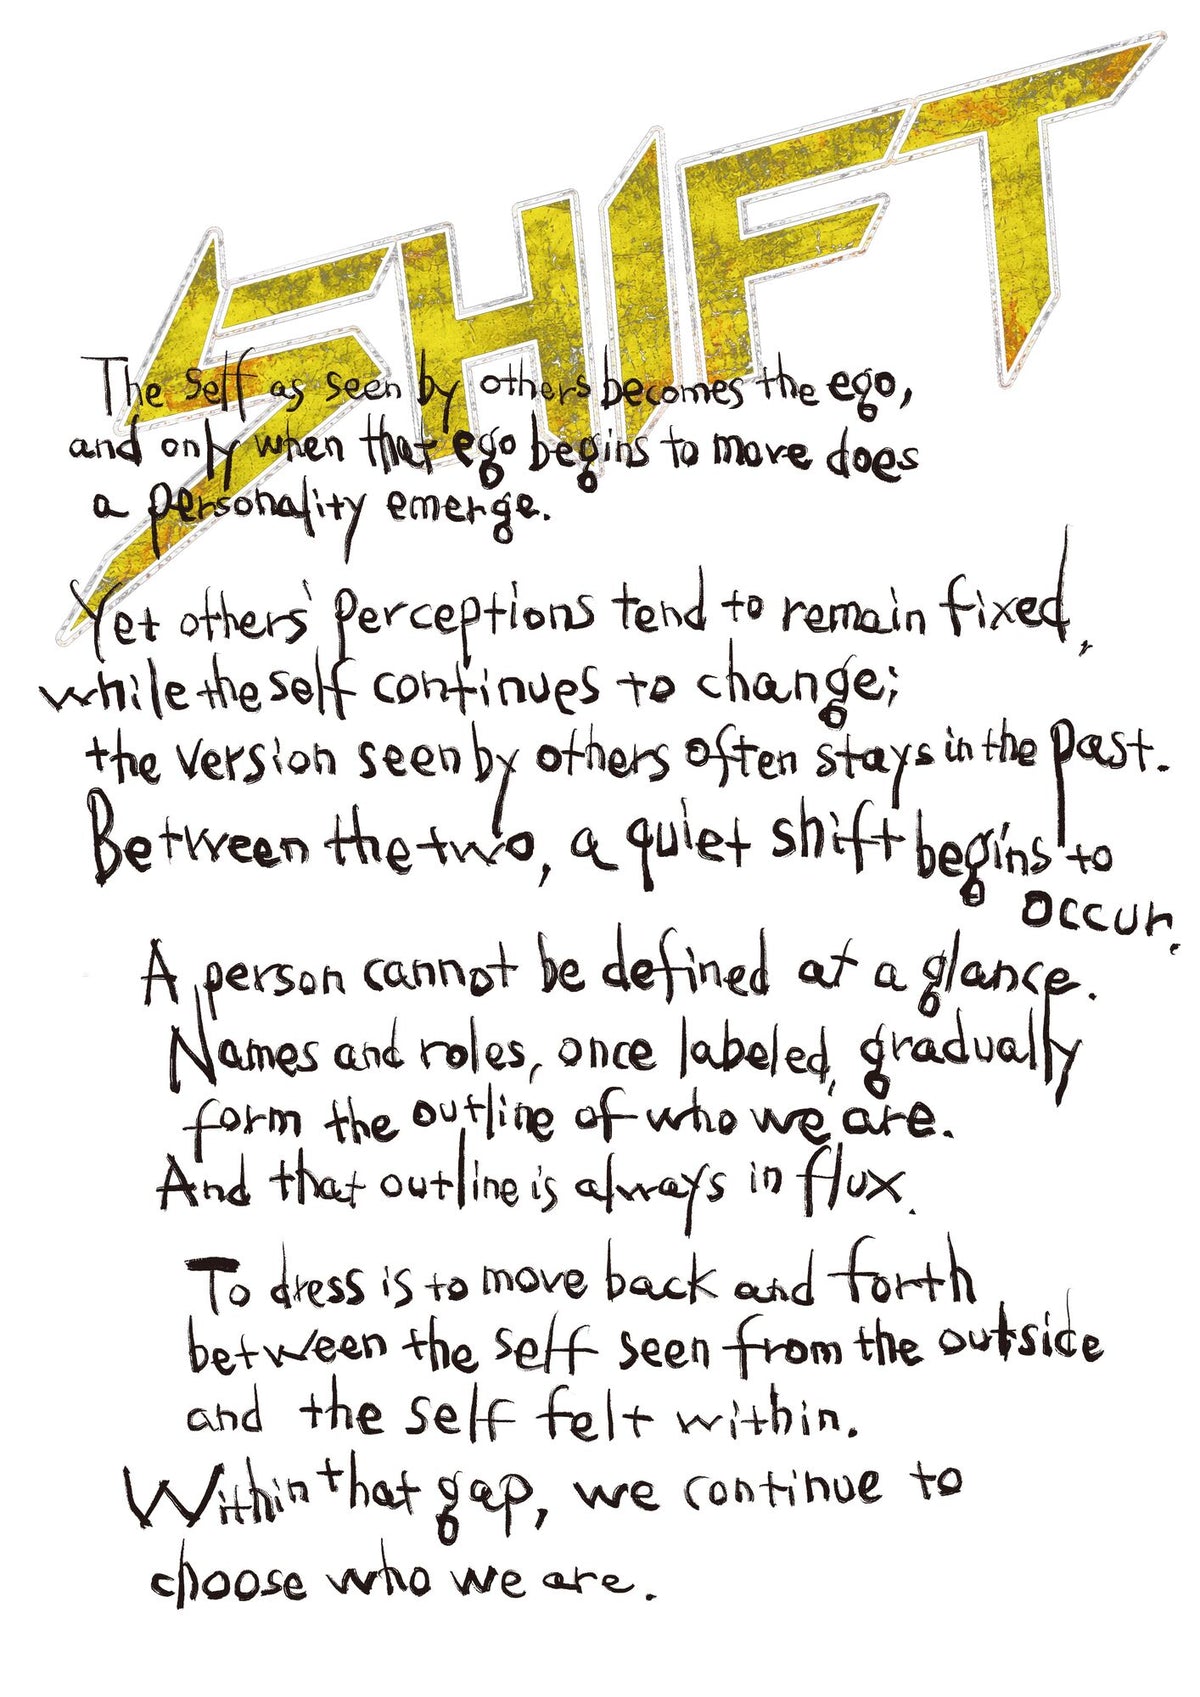 SHIFT
The self as seen by others becomes the ego,
and only when that ego begins to move does
a personality emerge.
Yet others' perceptions tend to remain fixed,
while the self continues to change;
the version seen by others often stays in the past.
Between the two, a quiet shift begins to
occur.
A person cannot be defined at a glance.
Names and roles, once labeled, gradually
form the outline of who we are.
And that outline is always in flux.
To dress is to move back and forth
between the self seen from the outside
and the self felt within.
Within that gap, we continue to
choose who we are.